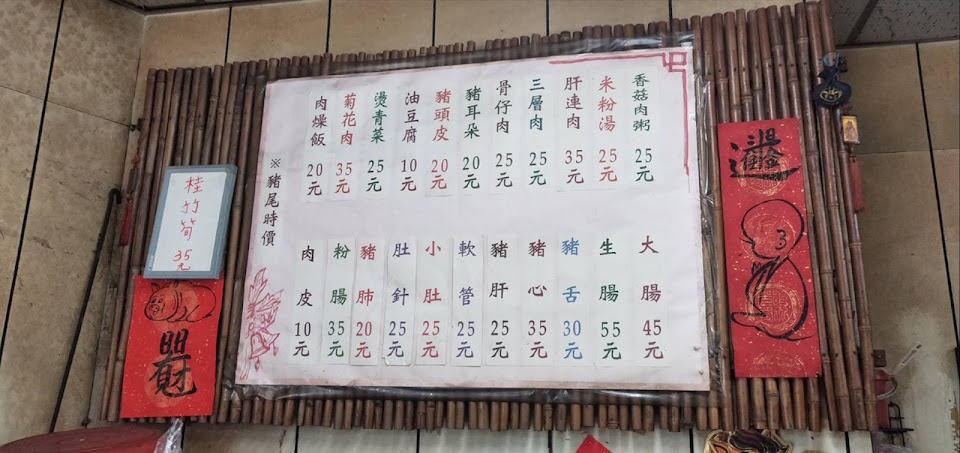 香菇肉粥25元
米粉湯25元
肝連肉35元
三層肉25元
骨仔肉25元
豬耳朵20元
豬頭皮20元
油豆腐10元
燙青菜25元
菊花肉35元
肉燥飯20元
大腸45元
生腸55元
豬舌30元
豬心35元
豬肝25元
軟管25元
小肚25元
肚針25元
豬肺20元
粉腸35元
肉皮10元
※豬尾時價
桂竹筍35元